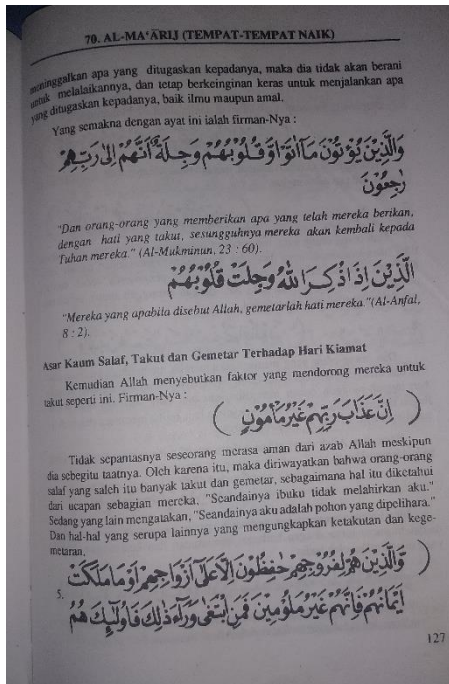 70. AL-MA'ĀRIJ (TEMPAT-TEMPAT NAIK)
meninggalkan apa yang ditugaskan kepadanya, maka dia tidak akan berani
untuk melalaikannya, dan tetap berkeinginan keras untuk menjalankan apa
yang ditugaskan kepadanya, baik ilmu maupun amal.
Yang semakna dengan ayat ini ialah firman-Nya :
وَالَّذِيْنَ يُؤْتُوْنَ مَآاٰتَوْا وَقُلُوْبُهُمْ وَجِلَةٌ اَنَّهُمْ اِلٰى رَبِّهِمْ
رٰجِعُوْنَ
"Dan orang-orang yang memberikan apa yang telah mereka berikan,
dengan hati yang takut, sesungguhnya mereka akan kembali kepada
Tuhan mereka." (Al-Mukminun, 23 : 60).
الَّذِيْنَ اِذَا ذُكِرَ اللّٰهُ وَجِلَتْ قُلُوْبُهُمْ
"Mereka yang apabila disebut Allah, gemetarlah hati mereka."(Al-Anfal,
8 : 2).
Asar Kaum Salaf, Takut dan Gemetar Terhadap Hari Kiamat
Kemudian Allah menyebutkan faktor yang mendorong mereka untuk
takut seperti ini. Firman-Nya :
( اِنَّ عَذَابَ رَبِّهِمْ غَيْرُ مَأْمُوْنٍ )
Tidak sepantasnya seseorang merasa aman dari azab Allah meskipun
dia sebegitu taatnya. Oleh karena itu, maka diriwayatkan bahwa orang-orang
salaf yang saleh itu banyak takut dan gemetar, sebagaimana hal itu diketahui
dari ucapan sebagian mereka, "Seandainya ibuku tidak melahirkan aku."
Sedang yang lain mengatakan, "Seandainya aku adalah pohon yang dipelihara."
Dan hal-hal yang serupa lainnya yang mengungkapkan ketakutan dan kege-
metaran.
5. ( وَالَّذِيْنَ هُمْ لِفُرُوْجِهِمْ حٰفِظُوْنَ اِلَّا عَلٰى اَزْوَاجِهِمْ اَوْ مَا مَلَكَتْ
اَيْمَانُهُمْ فَاِنَّهُمْ غَيْرُ مَلُوْمِيْنَ فَمَنِ ابْتَغٰى وَرَآءَ ذٰلِكَ فَاُولٰٓئِكَ هُمُ
127